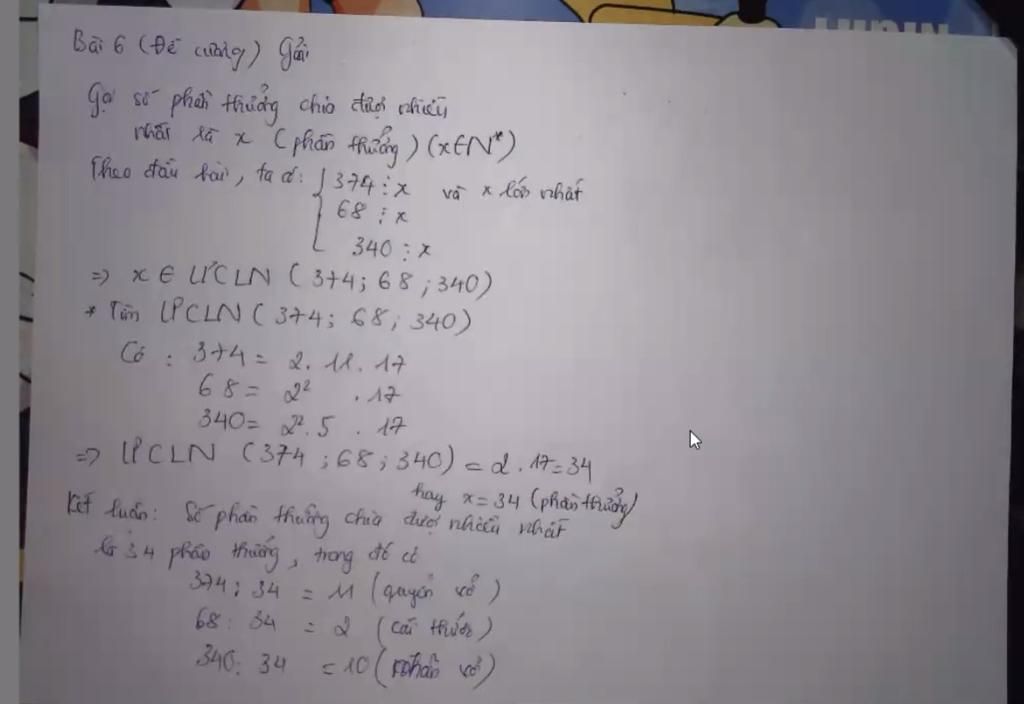 LUPIN
Bài 6 (Đề cương) Giải
Gọi số phần thưởng chia được nhiều
nhất là x (phần thưởng) (x∈N*)
Theo đầu bài, ta có: { 374 ⋮ x và x lớn nhất
68 ⋮ x
340 ⋮ x
=> x ∈ ƯCLN (374; 68; 340)
* Tìm ƯCLN (374; 68; 340)
Có : 374 = 2. 11. 17
68 = 2² . 17
340 = 2². 5 . 17
=> ƯCLN (374; 68; 340) = 2. 17 = 34
hay x = 34 (phần thưởng)
Kết luận: Số phần thưởng chia được nhiều nhất
là 34 phần thưởng, trong đó có
374 : 34 = 11 (quyển vở)
68 : 34 = 2 (cái thước)
340 : 34 = 10 (nhãn vở)